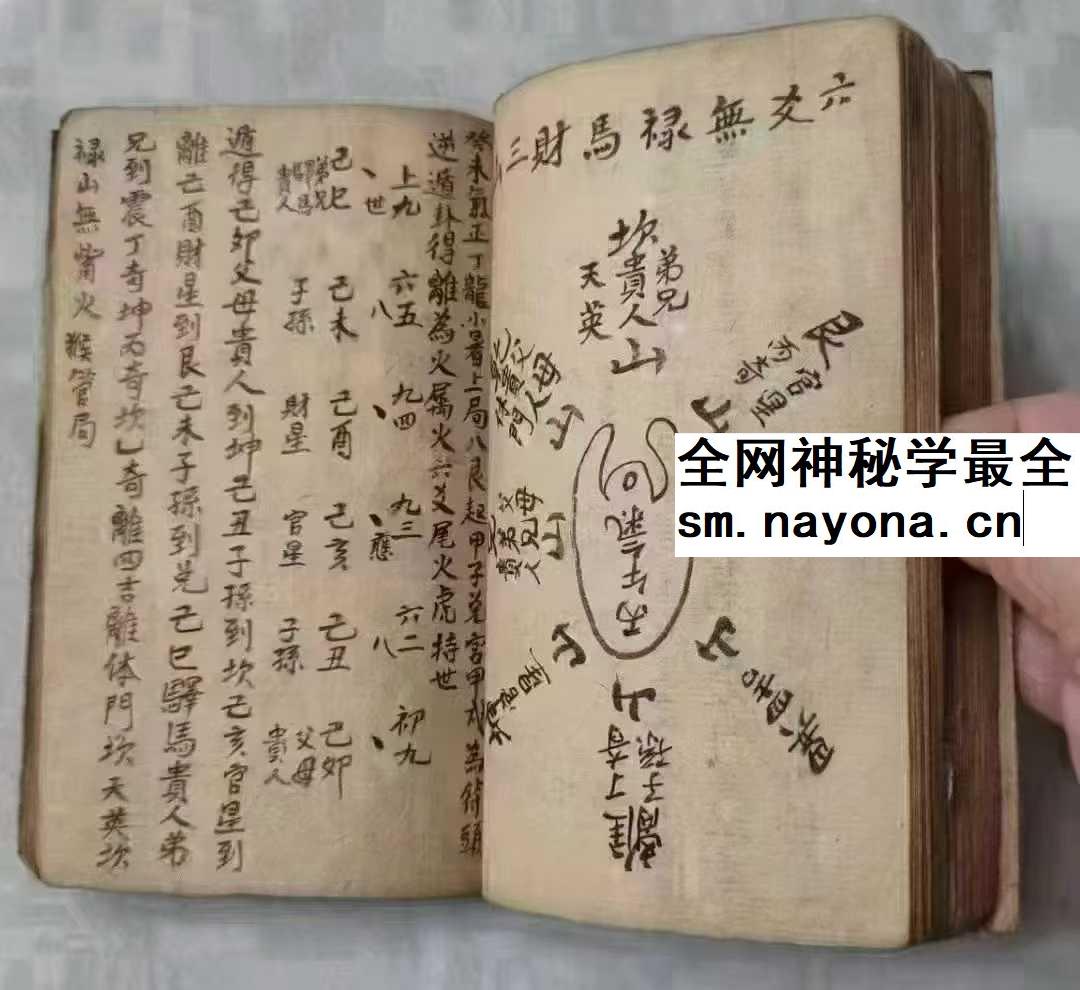 六爻無禄馬財三
坎
弟兄
貴人
天英
山
艮
官星
丙奇
山
父母
貴人
体門
山
父母
山
貴人
丙午氣
山
山
山
子孫
丁奇
離
癸未氣正丁龍小暑上局八艮起甲子兌宮甲戌為符頭
逆遁卦得離為火屬火六爻尾火虎持世
上九 六五 九四 九三 六二 初九
丶世 八 丶 丶應 八 丶
己巳 己未 己酉 己亥 己丑 己卯
弟兄驛馬貴人 子孫 財星 官星 子孫 父母貴人
遁得己卯父母貴人到坤己丑子孫到坎己亥官星到
離己酉財星到艮己未子孫到兌己巳驛馬貴人弟
兄到震丁奇坤丙奇坎乙奇離四吉離体門坎天英坎
禄山無觜火猴管局
全网神秘学最全
sm.nayona.cn